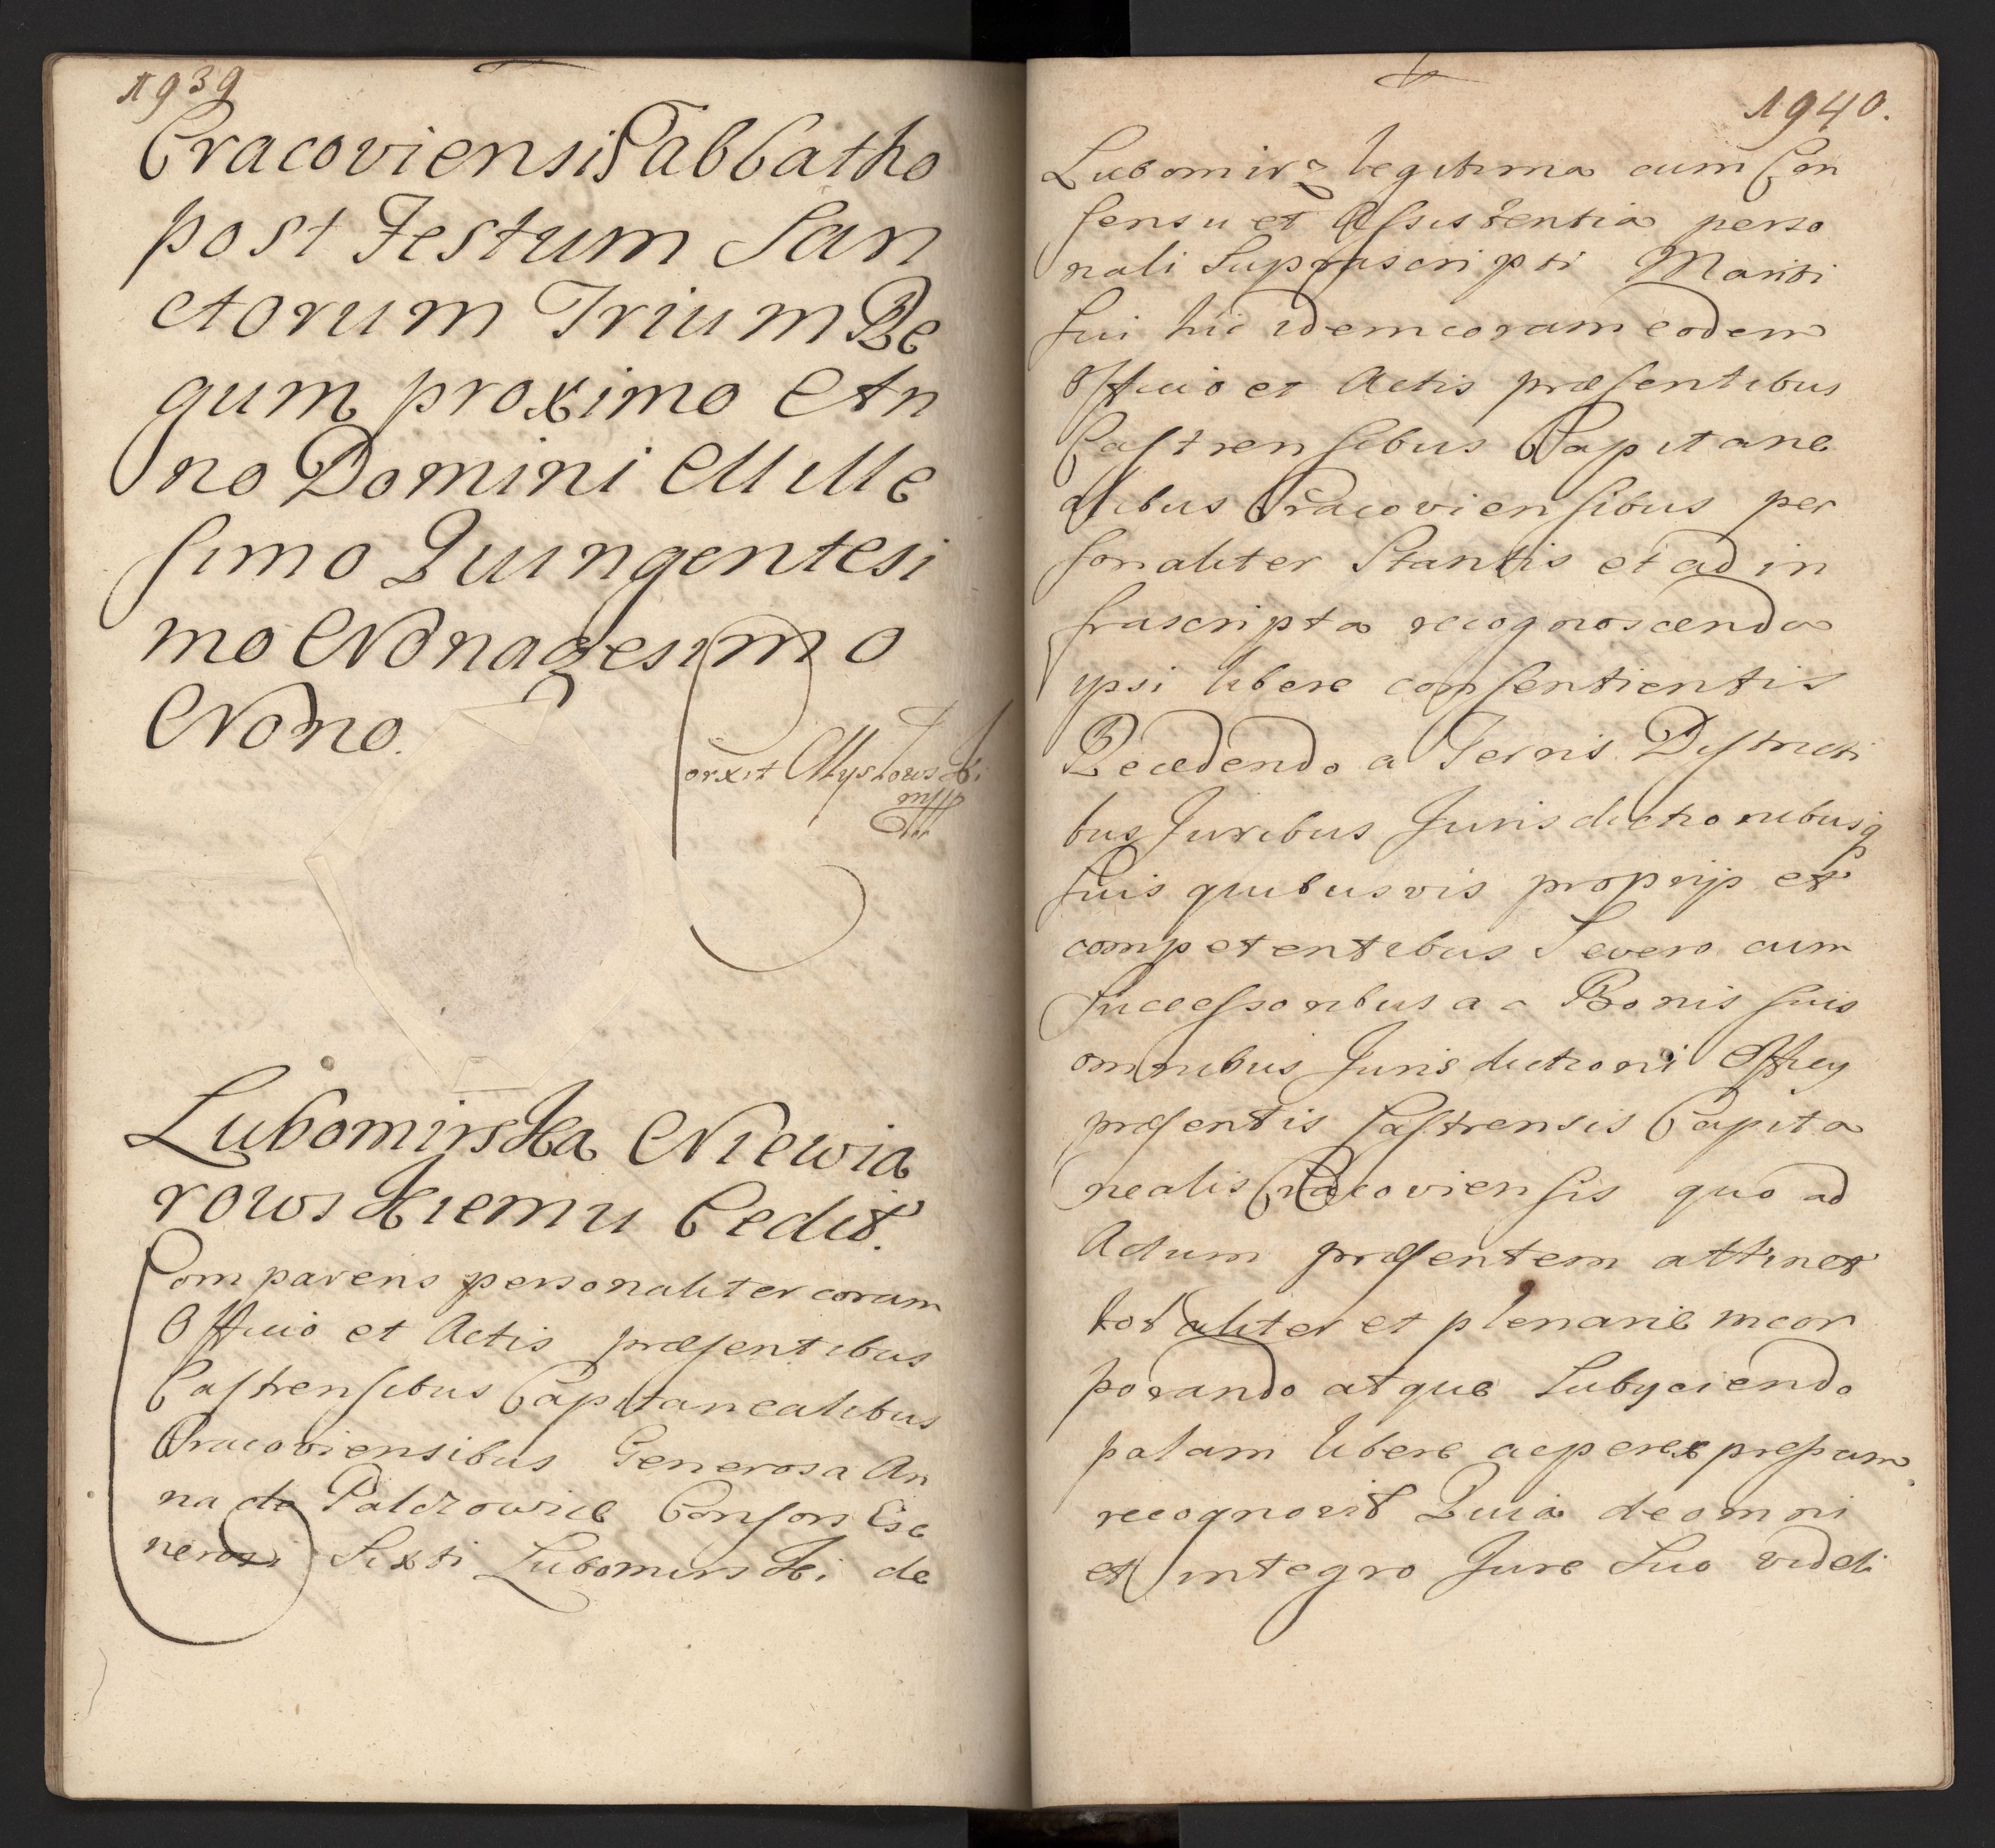 1939
Cracoviensi Sabbatho
post Festum San
ctorum Trium Re
gum proximo An
no Domini Mille
simo Quingentesi
mo Nonagesimo
Nono.
Lubomirska Niewia
rowskiemu Cedit.
Comparens personaliter coram
Officio et Actis præsentibus
Castrensibus Capitanealibus
Cracoviensibus Generosa An
na de Palczowice Consors Ge
nerosi Sixti Lubomirski de
1940.
Lubomirz legitima cum Con
sensu et Assistentia perso
nali Suprascripti Mariti
sui hic idem coram eodem
Officio et Actis præsentibus
Castrensibus Capitane
alibus Cracoviensibus per
sonaliter Stantis et ad in
frascripta recognoscenda
ipsi libere consentientis
Recedendo a Terris Districti
bus Juribus Jurisdictionibusq
suis quibusvis proprijs et
competentibus Se vero cum
Successoribus ac Bonis suis
omnibus Jurisdictioni Officij
præsentis Castrensis Capita
nealis Cracoviensis quo ad
Actum præsentem attinet
totaliter et plenarie incor
porando atque Subijciendo
palam libere ac per expressum
recognovit Quia de omni
et integro Jure Suo videli